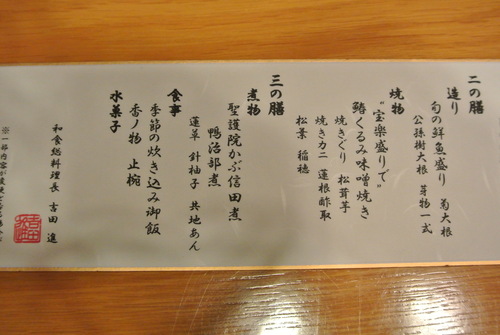 二の膳
造り
旬の鮮魚盛り 菊大根
公孫樹大根 芽物一式
焼物
"宝楽盛りで"
鰆くるみ味噌焼き
焼きぐり 松茸芋
焼きカニ 蓮根酢取
松葉 稲穂
三の膳
煮物
聖護院かぶ信田煮
鴨治部煮
蓮草 針柚子 共地あん
食事
季節の炊き込み御飯
香ノ物 止椀
水菓子
和食総料理長 吉田 進